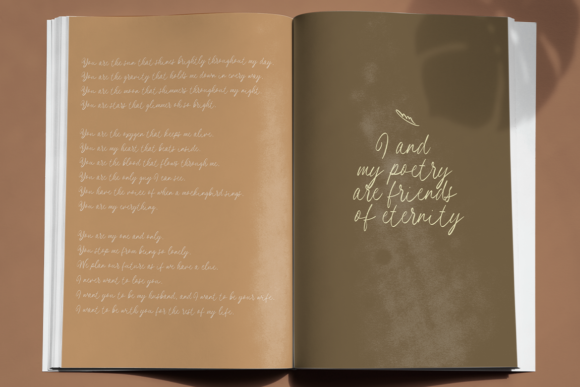 You are the sun that shines brightly throughout my day.
You are the gravity that holds me down in every way.
You are the moon that shimmers throughout my night.
You are stars that glimmer oh so bright.
You are the oxygen that keeps me alive.
You are my heart that beats inside.
You are the blood that flows through me.
You are the only guy I can see.
You have the voice of when a mockingbird sings.
You are my everything.
You are my one and only.
You stop me from being so lonely.
We plan our future as if we have a clue.
I never want to lose you.
I want you to be my husband, and I want to be your wife.
I want to be with you for the rest of my life.
I and
my poetry
are friends
of eternity